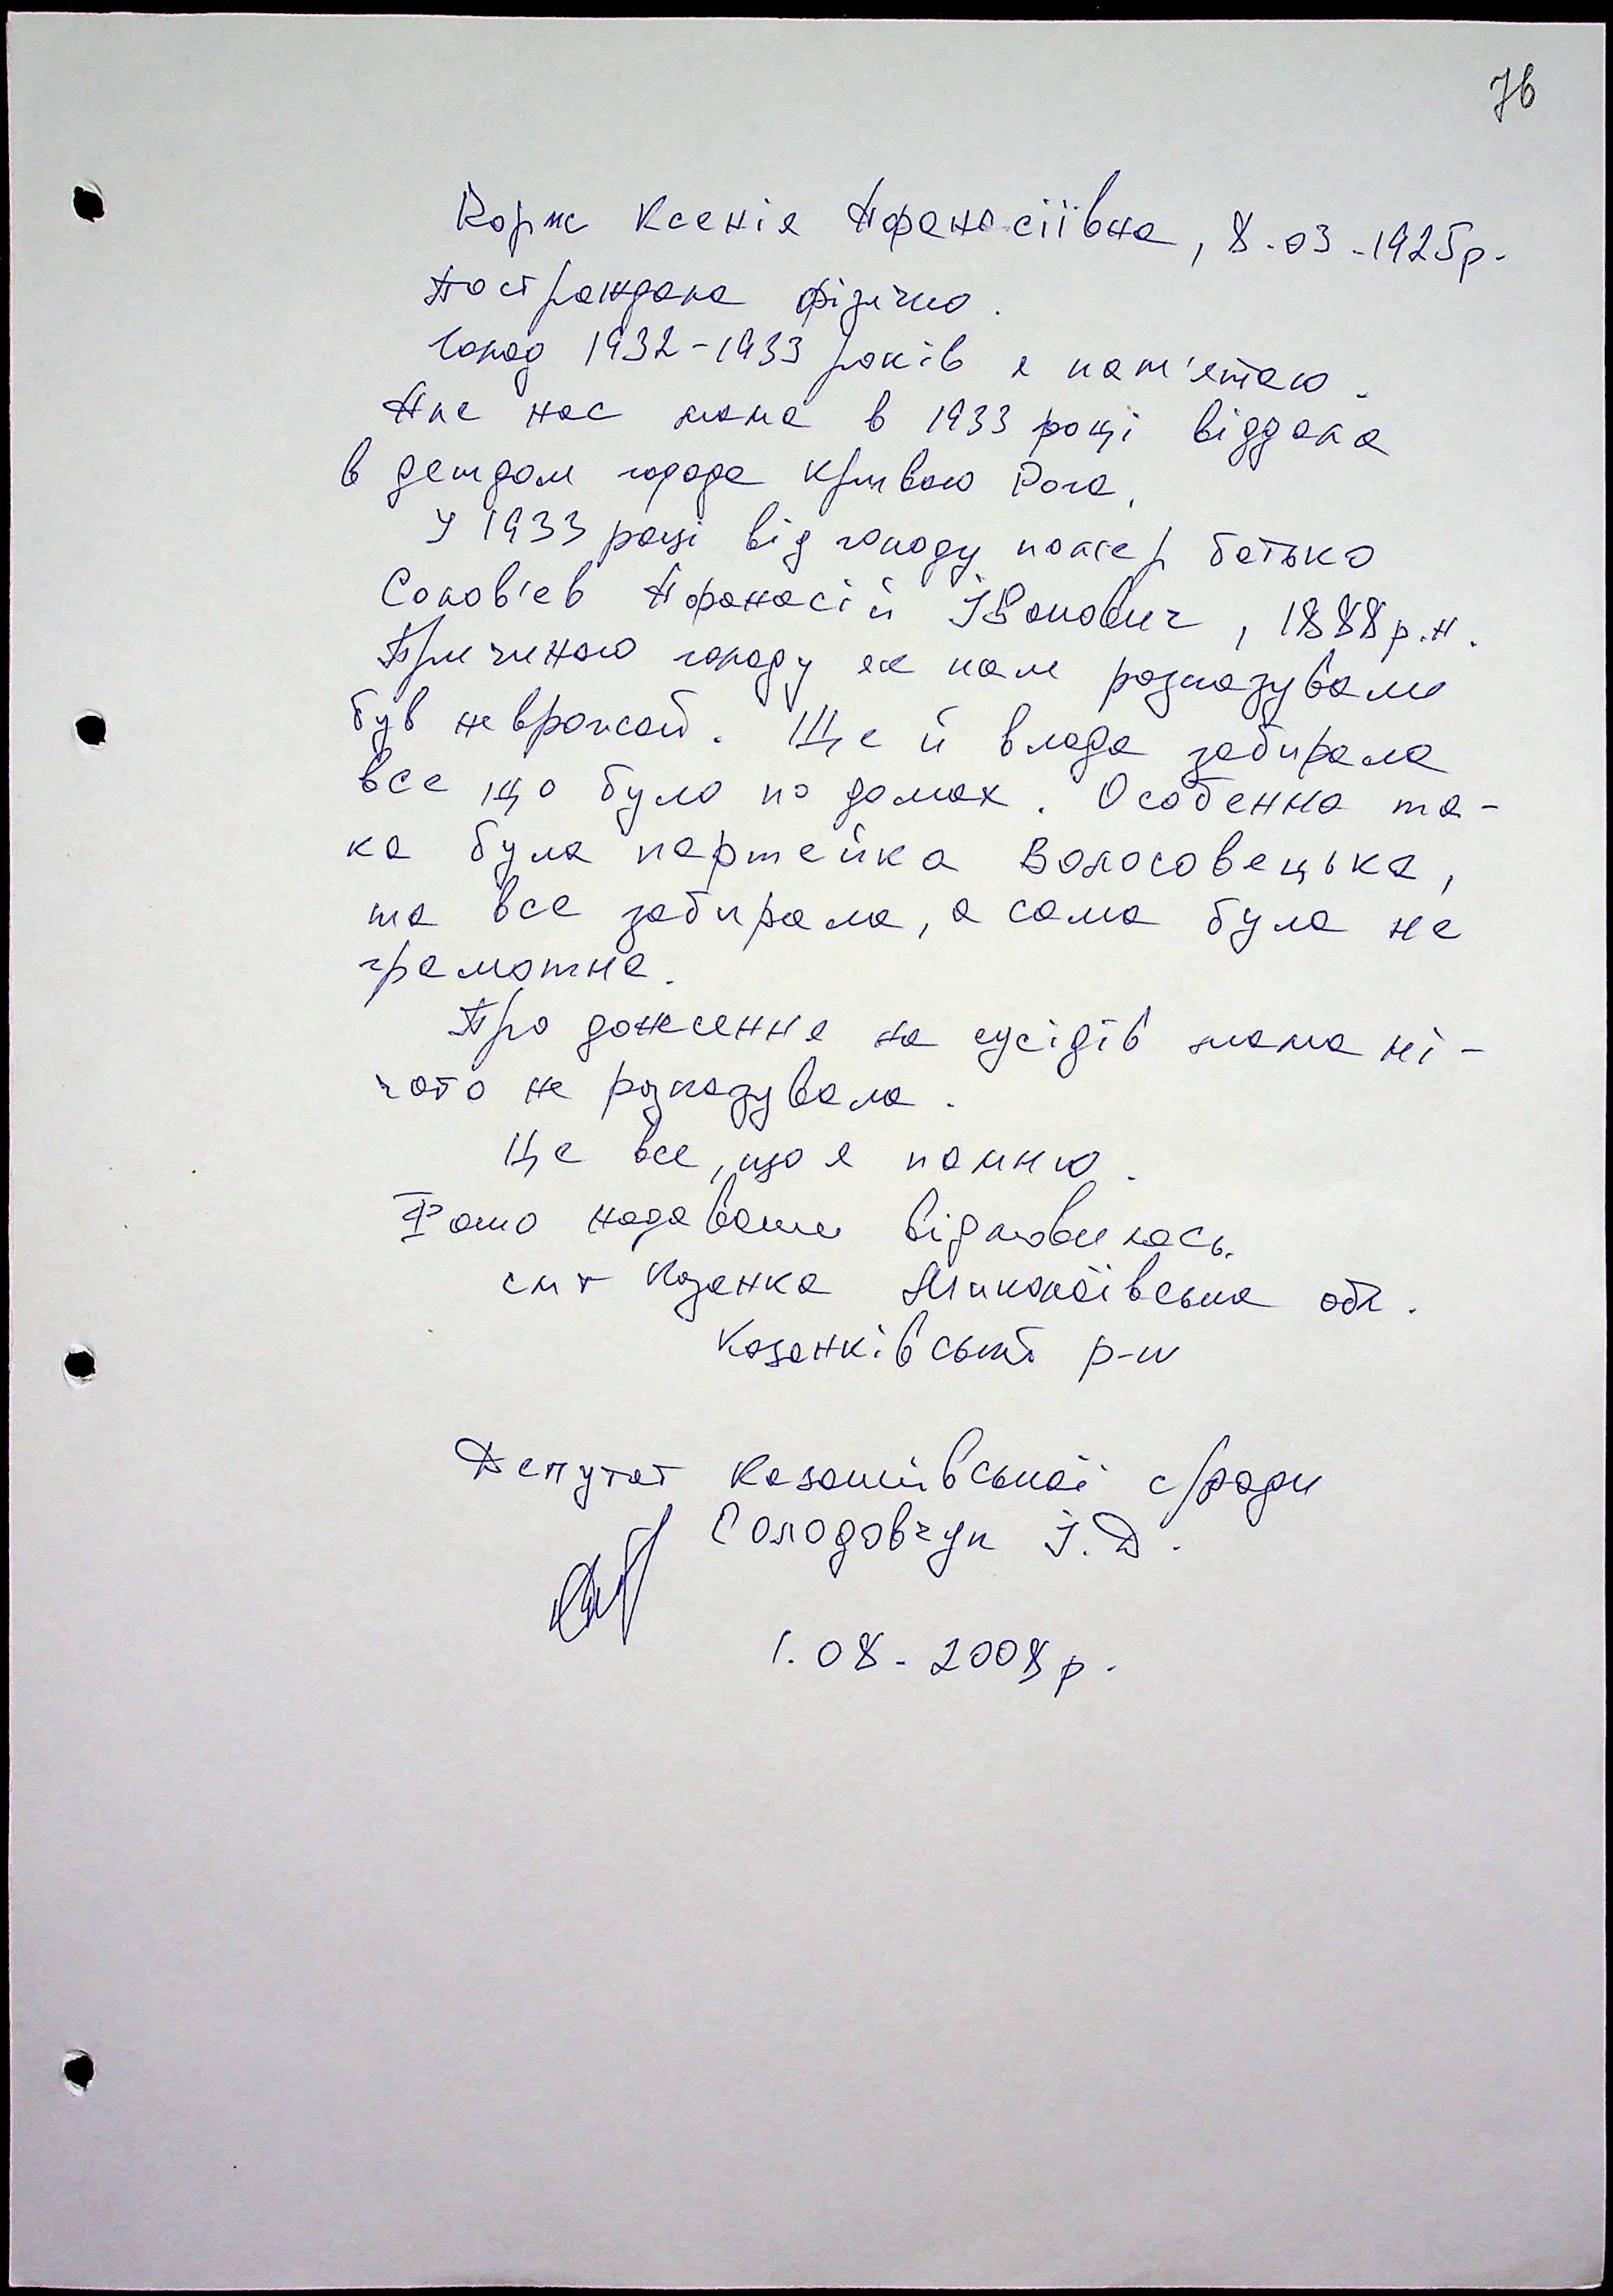 76
Корж Ксенія Афанасіївна, 8-03-1925р.
Постраждала фізично.
Голод 1932-1933 років я пам'ятаю.
Але нас мама в 1933 році віддала
в детдом города Кривого Рога.
У 1933 році від голоду помер батько
Соловйов Афанасій Іванович, 1888р.н.
Причиною голоду як нам розказували
був неврожай. Ще й влада забирала
все що було по домах. Особенно та-
ка була партейка Волосовецька,
та все забирала, а сама була не
грамотна.
Про доження на сусідів мама ні-
чого не розказувала.
Це все, що я помню.
Фото надавати відмовилась.
смт Казанка Миколаївська обл.
Казанківський р-н
Депутат Казанківської с/ради
Солодовчук І.Д.
1.08-2008р.